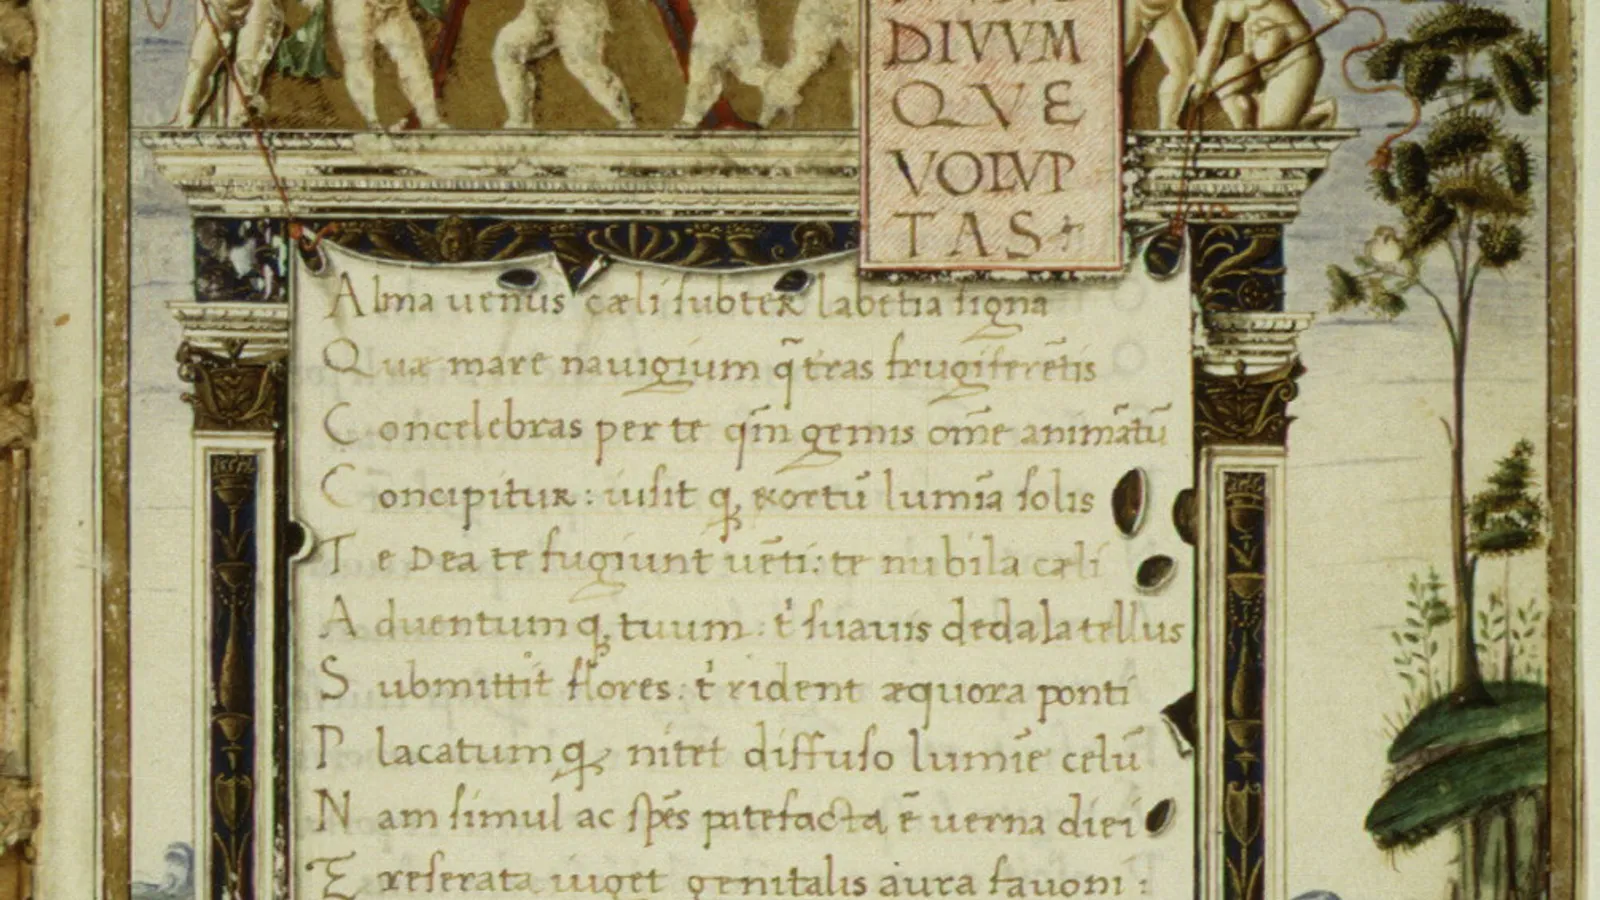 DIVVM
QVE
VOLVP
TAS
Alma uenus cæli subter labētia signa
Quæ mare nauigium q̄ t̄ras frugiferētis
Concelebras per te qm̄ genus om̄e animātū
Concipitur: uisit q, exortū lumīa solis
Te Dea te fugiunt uēti: te nubila cæli
Aduentumq, tuum: t' suauis dedala tellus
Submittit flores: t' rident æquora ponti
Placatumq, nitet diffuso lumīe celū
Nam simul ac sp̄es patefacta ē uerna diei
Et reserata uiget genitalis aura fauoni: